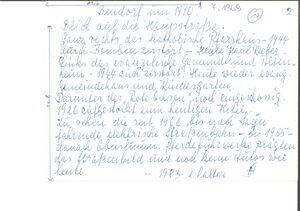 Bendorf um 1910
7.1369
2
Blick auf die Hauptstraße.
Ganz rechts das katholische Pfarrheim - 1944
durch Bomben zerstört - Heute
Links das evangelische Gemeinde und
heim - 1944 auch zerstört. Heute wieder evang.
Gemeindehaus und Kindergarten.
Darunter der "Rote Ochsen" noch eingeschossig.
1926 aufgestockt zum heutigen Hotel.
Zu sehen die seit 1906 bis nach Sayn
fahrende elektrische Straßenbahn - bis 1955 -
danach Obusbetrieb. Pferdefuhrwerke prägten
das Straßenbild und noch keine Autos wie
heute.
- 1983 erhalten